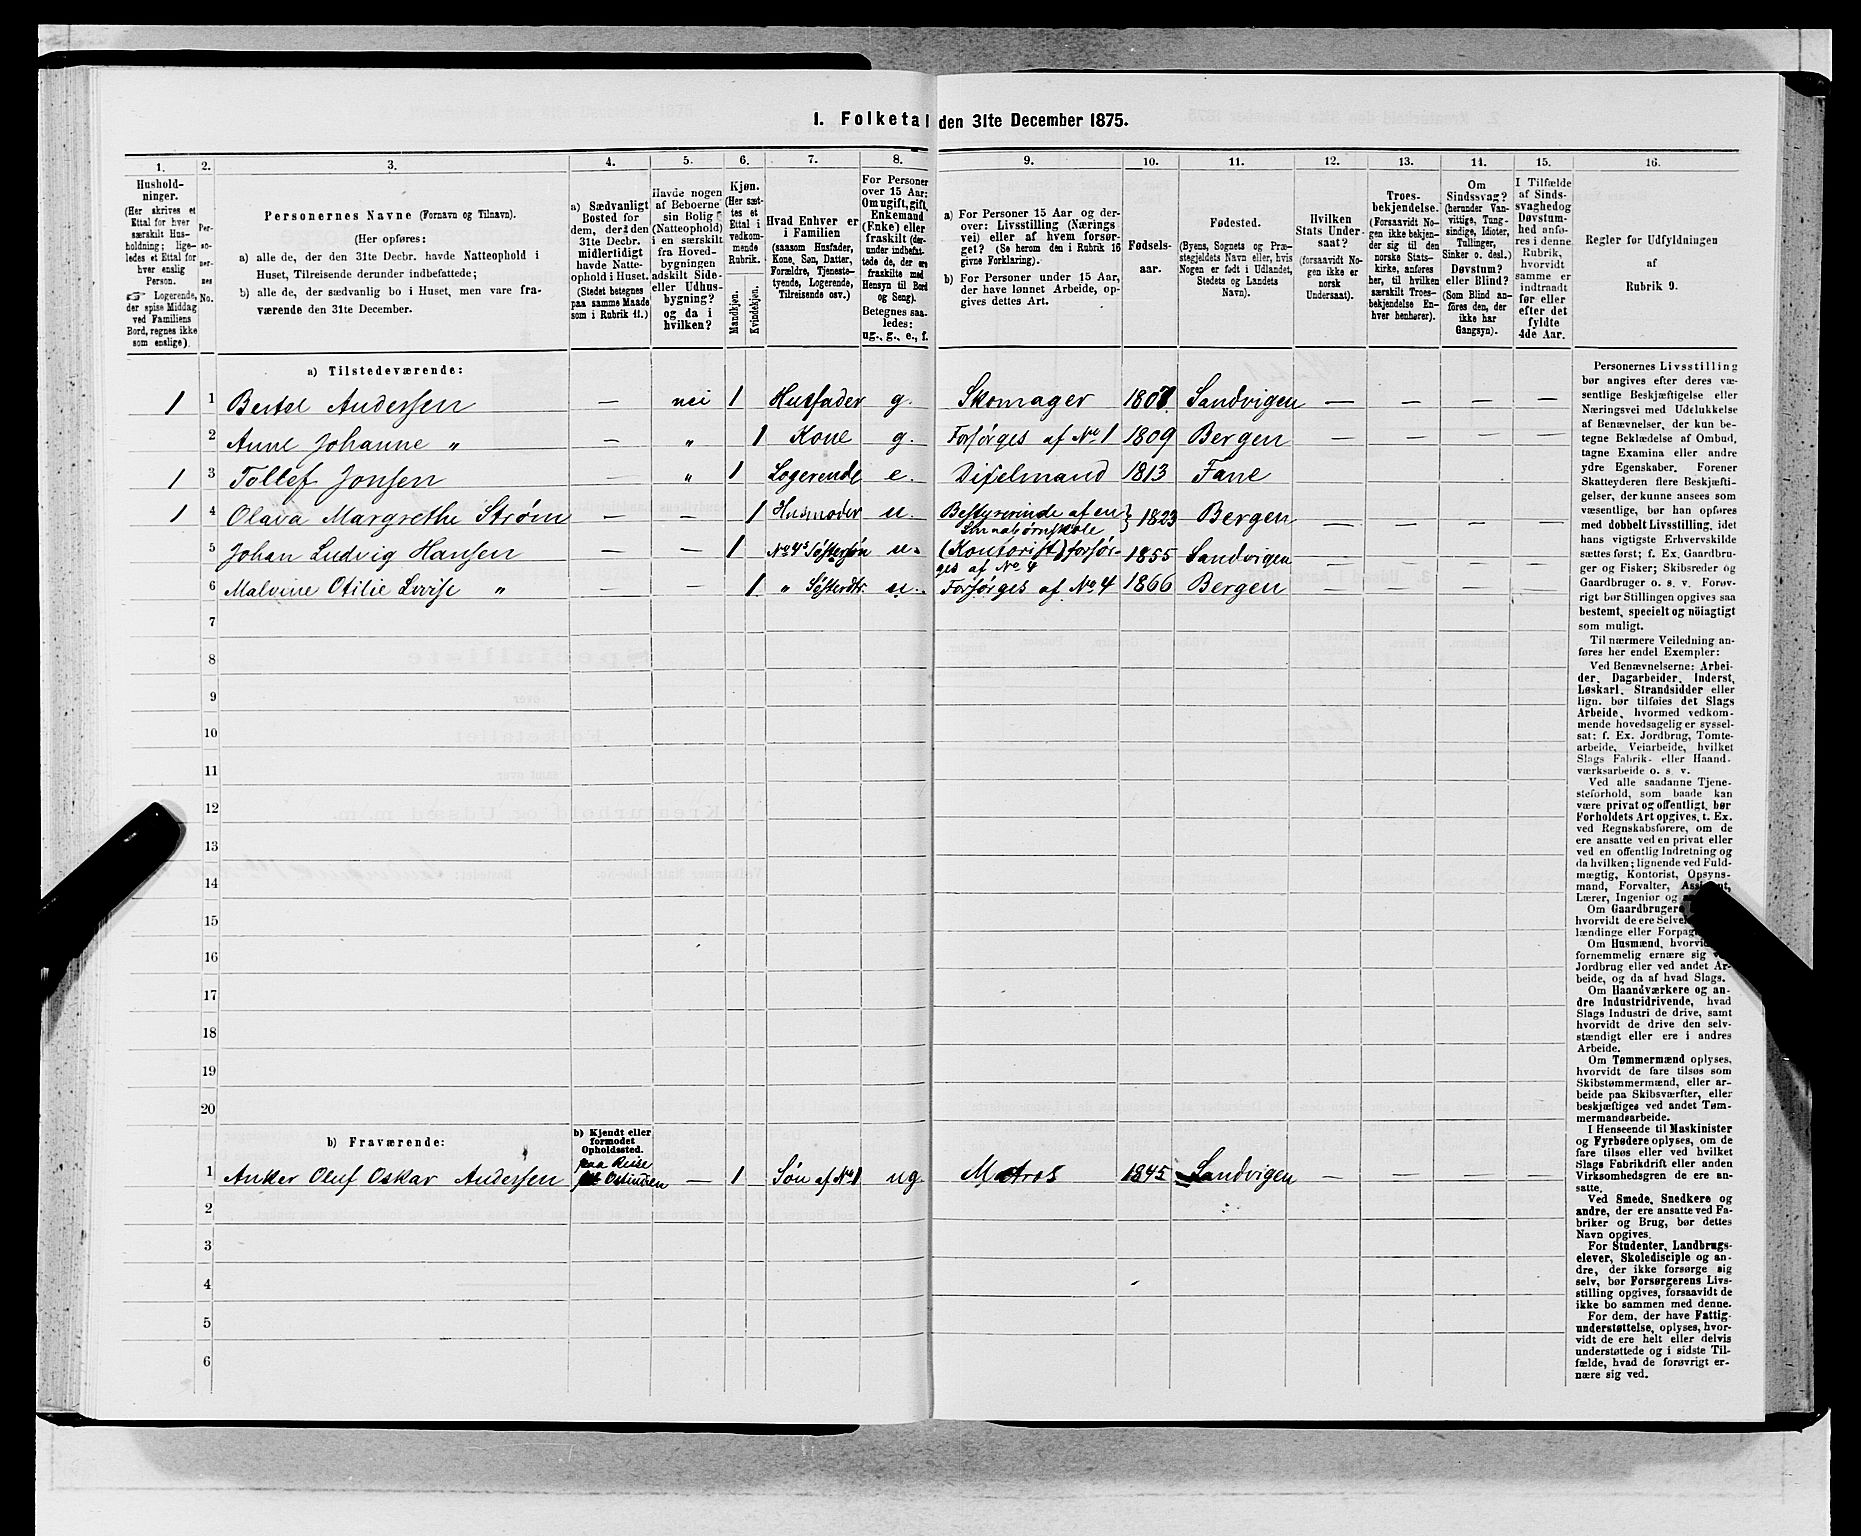 1. Folketal den 31te December 1875.
1.
2.
3.
4.
5.
6.
7.
8.
9.
10.
11.
12.
13.
14.
15.
16.
Hushold-
ninger.
(Her skrives et
Ettal for hver
særskilt Hus-
holdning; lige-
ledes et Ettal for
hver enslig
Person.
☞ Logerende,
der spise Middag
ved Familiens
Bord, regnes ikke
som enslige).
Per-
so-
ner-
nes
No.
Personernes Navne (Fornavn og Tilnavn).
(Her opføres:
a) alle de, der den 31te Decbr. havde Natteophold i
Huset, Tilreisende derunder indbefattede;
b) alle de, der sædvanlig bo i Huset, men vare fra-
værende den 31te December.
a) Sædvanligt
Bosted for
dem, der den
31te Decbr.
midlertidigt
havde Natte-
ophold i Huset.
(Stedet betegnes
paa samme Maade
som i Rubrik 11.)
Havde nogen
af Beboerne
sin Bolig
(Natteophold)
i en særskilt
fra Hoved-
bygningen
adskilt Side-
eller Udhus-
bygning?
og da i
hvilken?
Kjøn.
(Her sæt-
tes et
Ettal i
vedkom-
mende
Rubrik.
Mandkjøn.
Kvindekjøn.
Hvad Enhver er
i Familien
(saasom Husfader,
Kone, Søn, Datter,
Forældre, Tjeneste-
tyende, Logerende,
Tilreisende osv.)
For Personer
over 15 Aar:
Om ugift, gift,
Enkemand
(Enke) eller
fraskilt (der-
under indbefat-
tede de, der ere
fraskilte med
Hensyn til Bord
og Seng).
Betegnes saa-
ledes:
ug., g., e., f.
a) For Personer 15 Aar og der-
over: Livsstilling (Nærings
vei) eller af hvem forsør-
get? (Se herom den i Rubrik 16
givne Forklaring).
b) For Personer under 15 Aar,
der have lønnet Arbeide, op-
gives dettes Art.
Fødsels-
aar.
Fødested.
(Byens, Sognets og Præ-
stegjeldets Navn eller, hvis
Nogen er født i Udlandet,
Stedets og Landets
Navn).
Hvilken
Stats Under-
saat?
(forsaavidt No-
gen ikke er
norsk
Undersaat).
Troes-
bekjendelse.
(Forsaavidt No-
gen ikke bekjen-
der sig til den
norske Stats-
kirke, anføres
her, til hvilken
særskilt Troes-
bekjendelse En-
hver henhører).
Om
Sindssvag?
(herunder Van-
vittige, Tung-
sindige, Idioter,
Tullinger,
Sinker o. desl.)
Døvstum?
eller Blind?
(Som Blind an-
føres den, der
ikke har
Gangsyn).
I Tilfælde
af Sinds-
svaghed og
Døvstum-
hed anfø-
res i denne
Rubrik,
hvorvidt
samme er
indtraadt
før eller
efter det
fyldte
4de Aar.
Regler før Udfyldningen
af
Rubrik 9.
a) Tilstedeværende:
1 1 Bertel Andersen — nei 1 Husfader g. Skomager 1807. Sandvigen — — — —
2 Anne Johanne " — " 1 Kone g. Forsørges af No 1 1809 Bergen — — — —
1 3 Tollef Jonsen — " 1 Logerende e. Dixelmand 1813 Fane — — — —
1 4 Olava Margrethe Strøm — — 1 Husmoder u. Bestyrerinde af en
Smaabørnskole } 1823 Bergen — — — —
5 Johan Ludvig Hansen — — 1 No 4s Søstersøn u. (Kontorist) forsør-
ges af No 4 1855 Sandvigen — — — —
6 Malvine Otilie Lovise " 1 " Søsterdtr. u. Forsørges af No 4 1866 Bergen — — — —
7
8
9
10
11
12
13
14
15
16
17
18
19
20
b) Fraværende:
b) Kjendt eller
formodet
Opholdssted.
1 Anker Oluf Oskar Andersen paa Reise
Ostindien — 1 Søn af No 1 ug. Matros 1845 Sandvigen — — — —
2
3
4
5
6
Personernes Livsstilling
bør angives efter deres væ-
sentlige Beskjæftigelse eller
Næringsvei med Udelukkelse
af Benævnelser, der kun be-
tegne Beklædelse af Ombud,
tagne Examina eller andre
ydre Egenskaber. Forener
Skatteyderen flere Beskjæfti-
gelser, der kunne ansees som
væsentlige, bør han opføres
med dobbelt Livsstilling, idet
hans vigtigste Erhvervskilde
sættes først; f. Ex. Gaardbru-
ger og Fisker; Skibsreder og
Gaardbruger o. s. v. Forøv-
rigt bør Stillingen opgives saa
bestemt, specielt og nöiagtigt
som muligt.
Til nærmere Veiledning an-
føres her endel Exempler:
Ved Benævnelserne: Arbei-
der, Dagarbeider, Inderst,
Løskarl, Strandsidder eller
lign. bør tilføies det Slags
Arbeide, hvormed vedkom-
mende hovedsagelig er syssel-
sat: f. Ex. Jordbrug, Tomte-
arbeide, Veiarbeide, hvilket
Slags Fabrik- eller Haand-
værksarbeide o. s. v.
Ved alle saadanne Tjene-
steforhold, som baade kan
være privat og offentligt, bør
Forholdets Art opgives, t. Ex.
ved Regnskabsførere, om de
ere ansatte ved en privat eller
ved en offentlig Indretning og
da hvilken; lignende ved Fuld-
mægtig, Kontorist, Opsyns-
mand, Forvalter,
Lærer, Ingeniør og
Om Gaardbrugere
hvorvidt de ere
lændinge eller
Om Husmænd,
fornemmelig ernære sig
Jordbrug eller ved andet Ar-
beide, og da af hvad Slags.
Om Haandværkere og an-
dre Industridrivende, hvad
Slags Industri de drive, samt
hvorvidt de drive den selv-
stændigt eller ere i andres
Arbeide.
Om Tømmermænd oplyses,
hvorvidt de fare tilsøs som
Skibstømmermænd, eller ar-
beide paa Skibsværfter, eller
beskjæftiges ved andet Tøm-
mermandsarbeide.
I Henseende til Maskinister
og Fyrbødere oplyses, om de
fare tilsøs eller ved hvilket
Slags Fabrikdrift eller anden
Virksomhedsgren de ere an-
satte.
Ved Smede, Snedkere og
andre, der ere ansatte ved Fa-
briker og Brug, bør dettes
Navn opgives.
For Studenter, Landbrugs-
elever, Skoledisciple og an-
dre, der ikke forsørge sig
selv, bør Forsørgerens Livs-
stilling opgives, forsaavidt de
ikke bo sammen med denne.
For dem, der have Fattig-
understøttelse, oplyses, hvor-
vidt de ere helt eller delvis
understøttede og i sidste Til-
fælde, hvad de forøvrigt er-
nære sig ved.